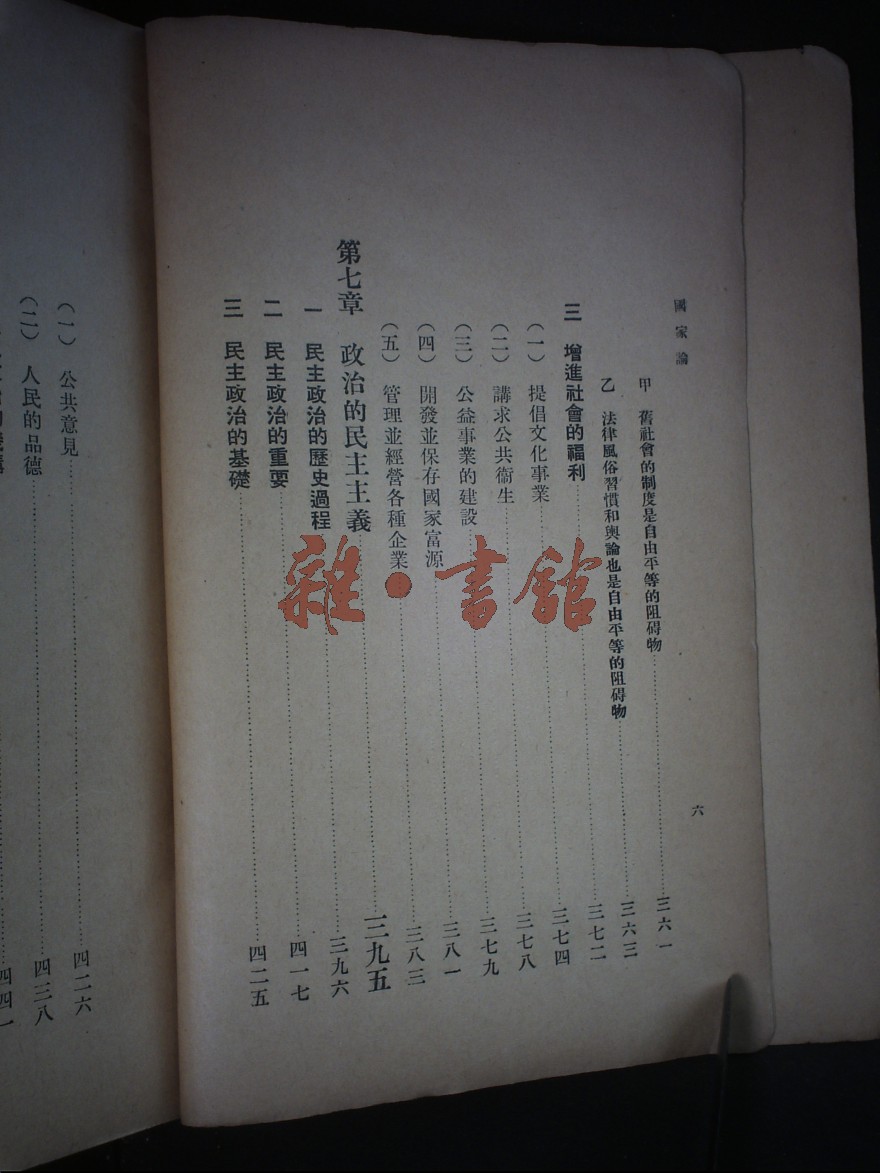 國家論
六
甲 舊社會的制度是自由平等的阻碍物 三六一
乙 法律風俗習慣和輿論也是自由平等的阻碍物 三六三
三 增進社會的福利 三七二
(一) 提倡文化事業 三七四
(二) 講求公共衞生 三七八
(三) 公益事業的建設 三七九
(四) 開發並保存國家富源 三八一
(五) 管理並經營各種企業 三八三
第七章 政治的民主主義 三九五
一 民主政治的歷史過程 三九六
二 民主政治的重要 四一七
三 民主政治的基礎 四二五
(一) 公共意見 四二六
(二) 人民的品德 四三八
四四一
雜·書館